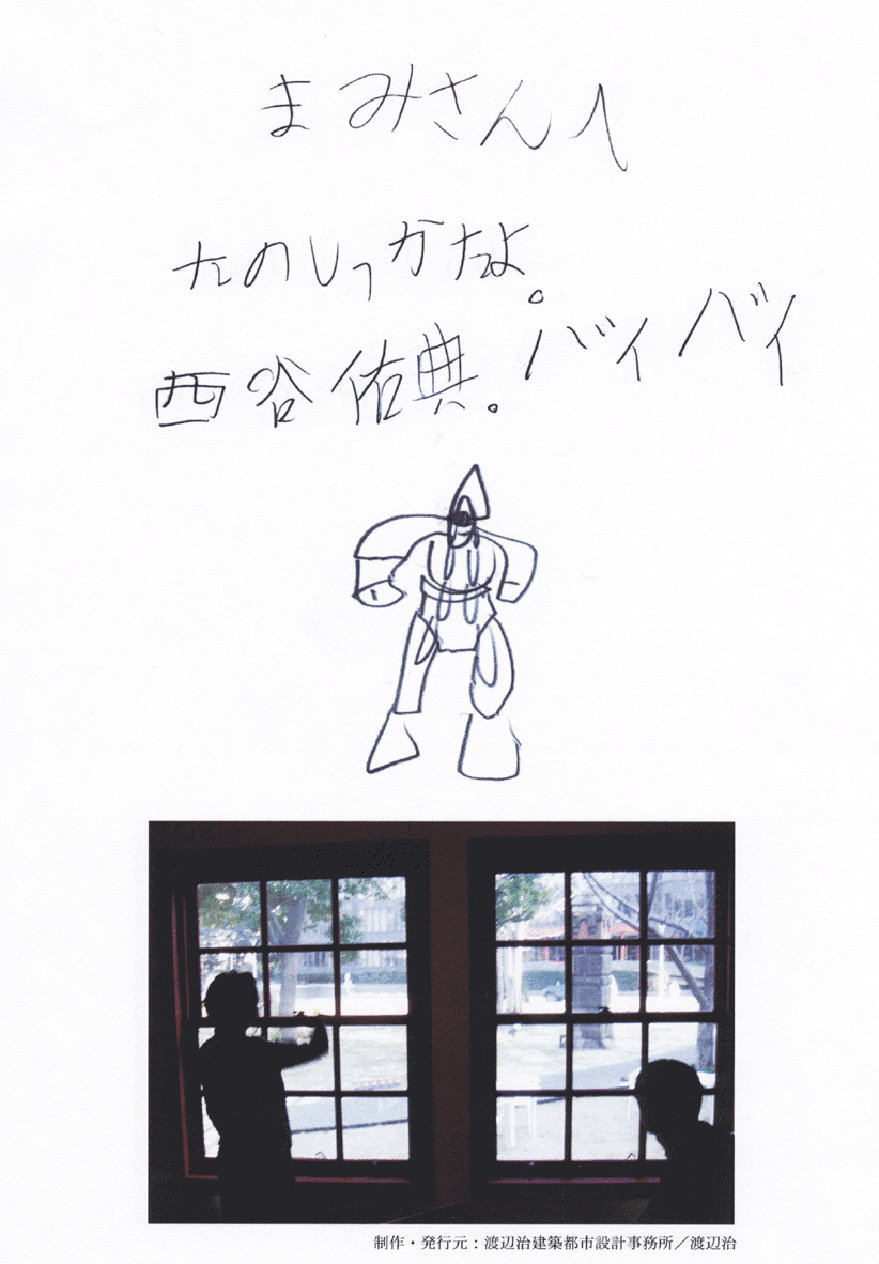 まみさんへ
たのしっかたよ。
バイバイ
西谷佑典。
制作・発行元：渡辺治建築都市設計事務所／渡辺治